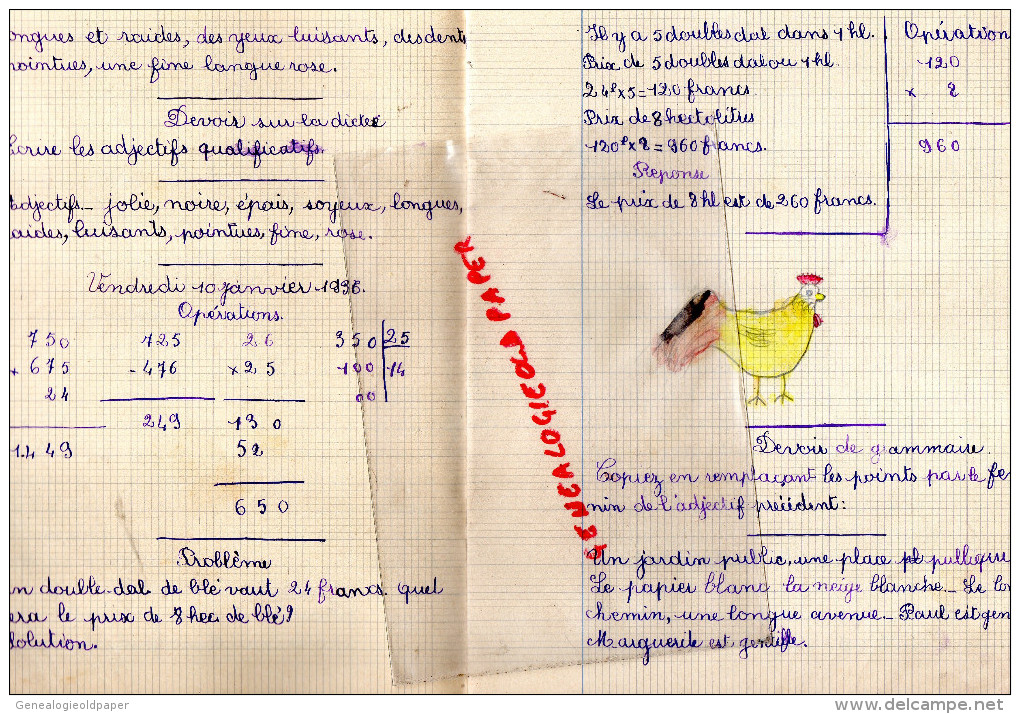 ongues et raides, des yeux luisants, des dents
pointues, une fine langue rose.
Devoir sur la dictée
Ecrire les adjectifs qualificatifs.
Adjectifs - jolie, noire, épais, soyeux, longues,
raides, luisants, pointues, fine, rose.
Vendredi 10 janvier 1936.
Opérations.
750 725 26 350 25
+ 675 - 476 x 25 100 14
24 00
249 130
1449 52
650
Problème
un double-dal de blé vaut 24 francs. quel
era le prix de 8 hec de blé?
Solution.
Il y a 5 doubles dal dans 1 hl.
Prix de 5 doubles dal ou 1 hl.
24f x 5 = 120 francs.
Prix de 8 hectolitres
120f x 8 = 960 francs.
Reponse
Le prix de 8 hl est de 260 francs.
Opération
120
x 8
960
Devoir de grammaire.
Copiez en remplaçant les points par le fe
nin de l'adjectif précédent:
Un jardin public, une place publique
Le papier blanc la neige blanche - Le lon
chemin, une longue avenue. - Paul est gen
Marguerite est gentille.
GENEALOGIEOLDPAPER
Genealogieoldpaper
delcampe.net